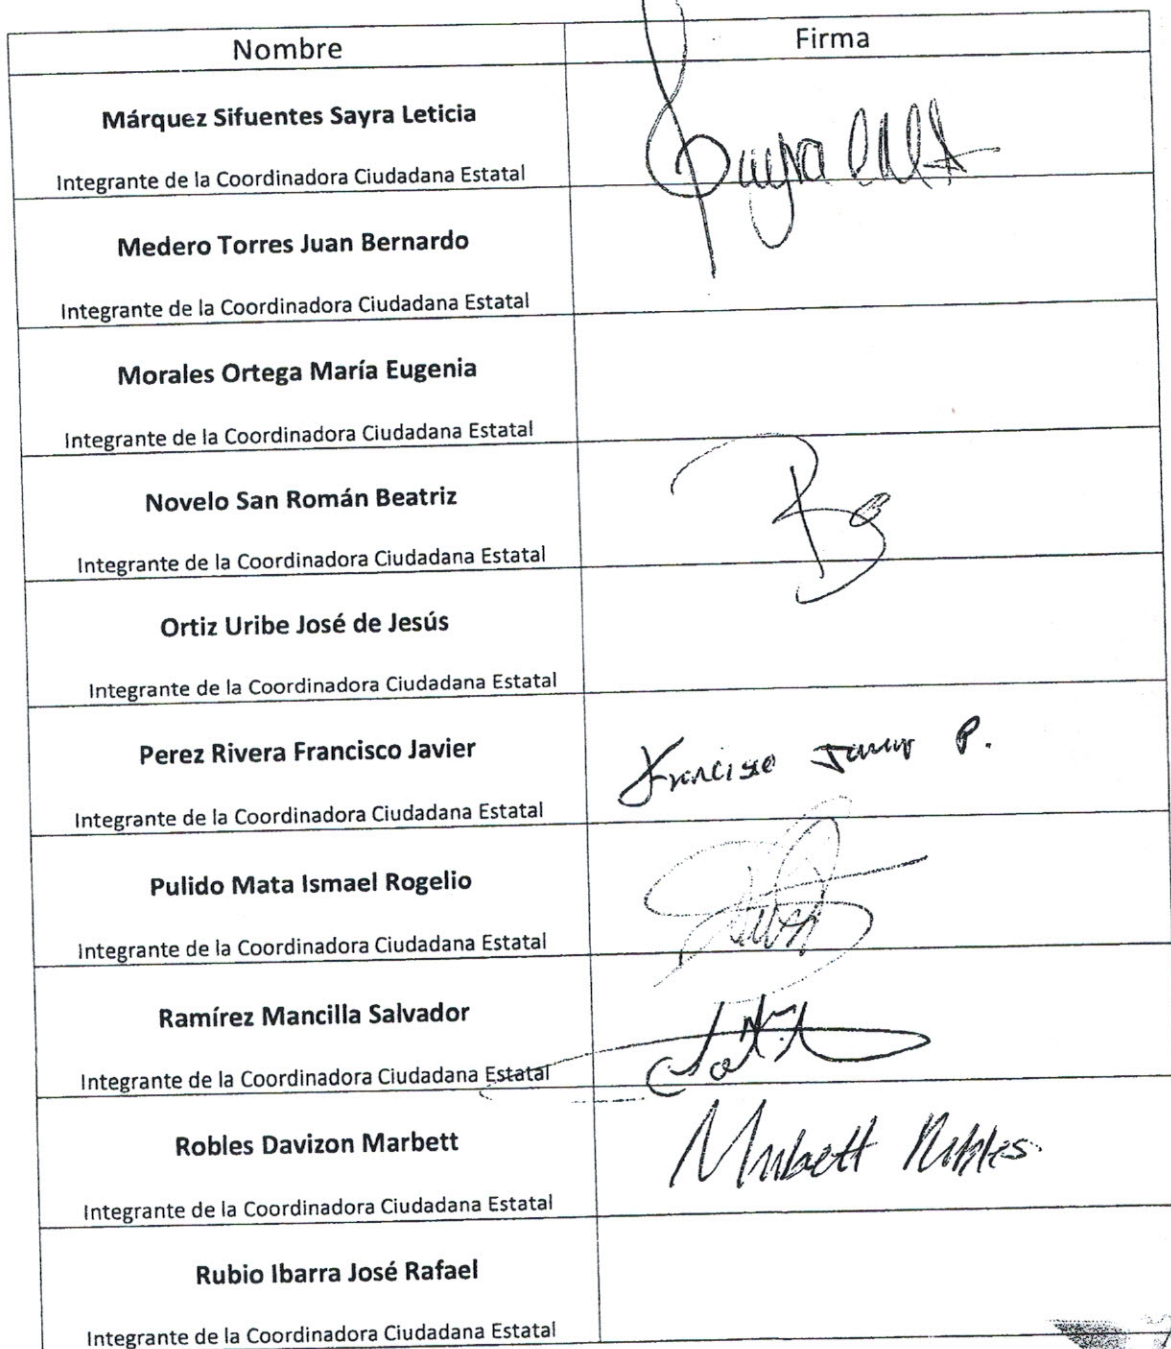 Nombre Firma
Márquez Sifuentes Sayra Leticia
Integrante de la Coordinadora Ciudadana Estatal
Medero Torres Juan Bernardo
Integrante de la Coordinadora Ciudadana Estatal
Morales Ortega María Eugenia
Integrante de la Coordinadora Ciudadana Estatal
Novelo San Román Beatriz
Integrante de la Coordinadora Ciudadana Estatal
Ortiz Uribe José de Jesús
Integrante de la Coordinadora Ciudadana Estatal
Perez Rivera Francisco Javier
Francisco Javier P.
Integrante de la Coordinadora Ciudadana Estatal
Pulido Mata Ismael Rogelio
Integrante de la Coordinadora Ciudadana Estatal
Ramírez Mancilla Salvador
Integrante de la Coordinadora Ciudadana Estatal
Robles Davizon Marbett
Marbett Robles
Integrante de la Coordinadora Ciudadana Estatal
Rubio Ibarra José Rafael
Integrante de la Coordinadora Ciudadana Estatal